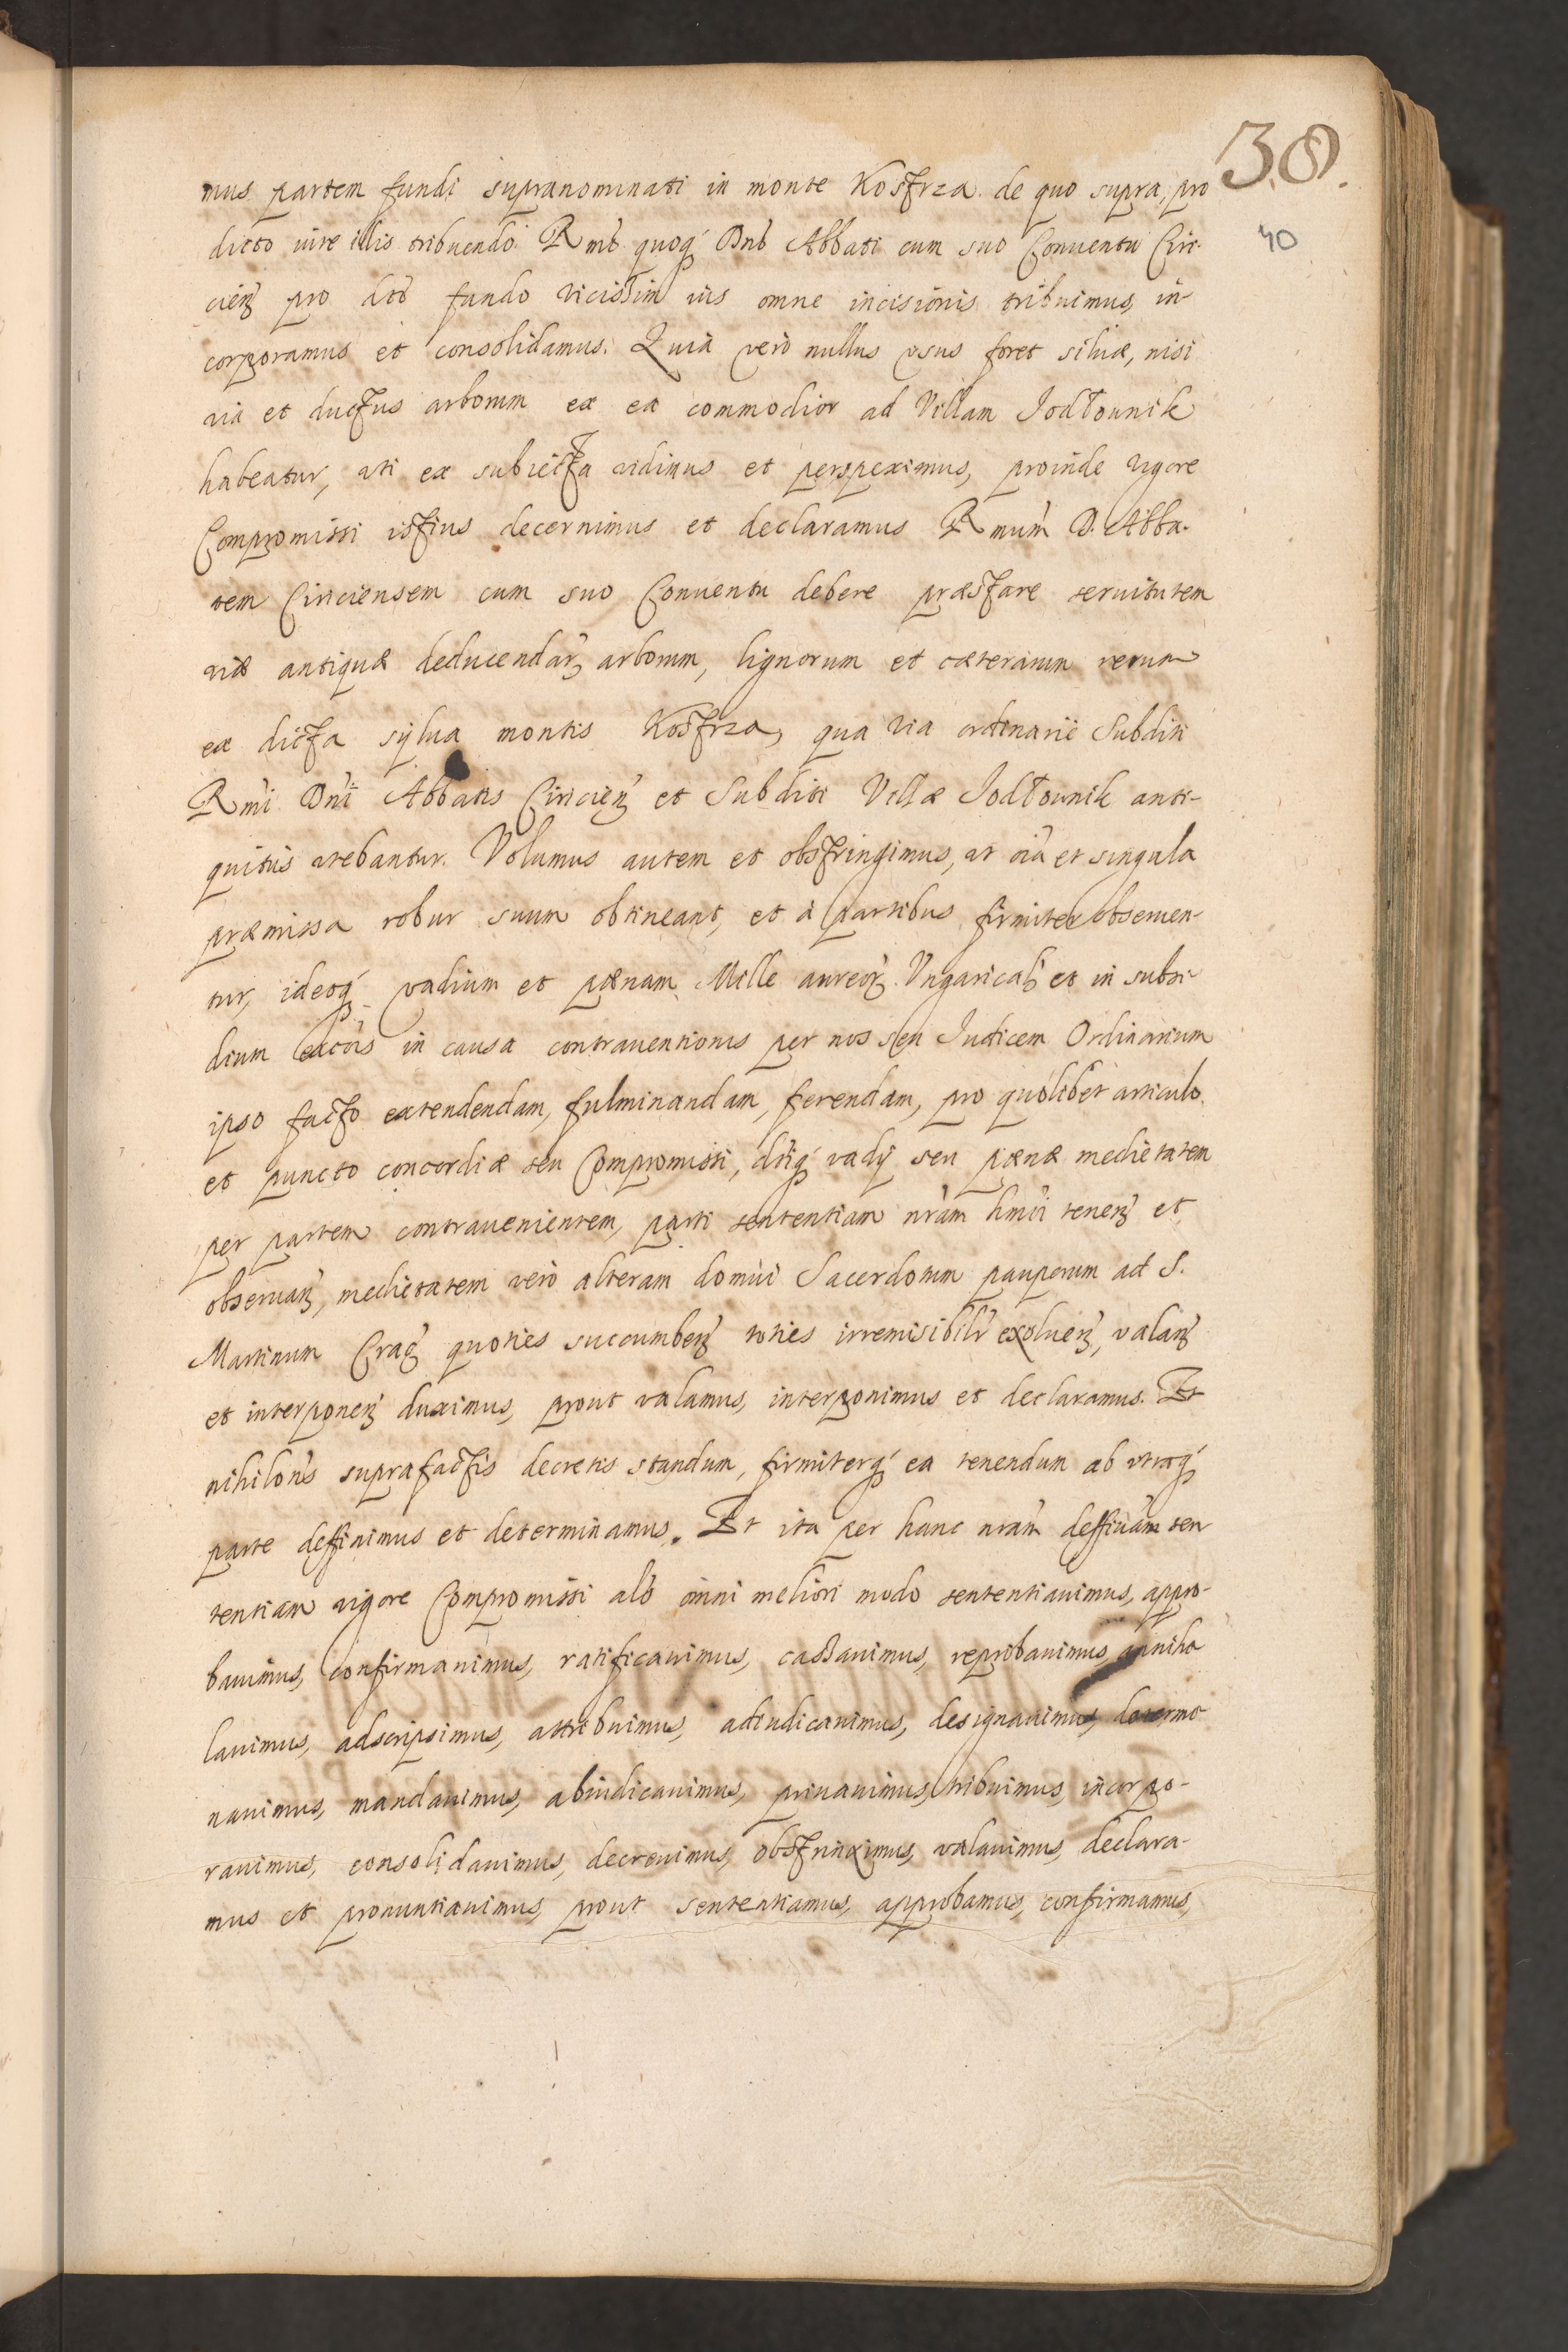 38.
40
mus partem fundi supranominati in monte Kostrza de quo supra, pro
dicto iure illis tribuendo. Rmo quoq́ Dno Abbati cum suo Conuentu Ciri-
cieñ pro dcto fundo vicissim ius omne incisionis tribuimus, in-
corporamus et consolidamus. Quia vero nullus vsus foret siluæ, nisi
via et ductus arborum ex ea commodior ad Villam Jodłownik
habeatur, uti ex subiecta vidimus et perspeximus, proinde vigore
Compromissi istius decernimus et declaramus Rmum D. Abba-
tem Ciriciensem cum suo Conuentu debere præstare seruitutem
viæ antiquæ deducendar arborum, lignorum et cæterarum rerum
ex dicta sylua montis Kostrza, qua via ordinarie Subditi
Rmi Dni Abbatis Ciricieñ et Subditi Villæ Jodłownik anti-
quitus utebantur. Volumus autem et obstringimus, ut oia et singula
præmissa robur suum obtineant, et à partibus firmiter obseruen-
tur, ideoq́ vadium et pœnam Mille aureor Vngarical et in subsi-
dium excois in causa contrauentionis per nos seu Judicem Ordinarium
ipso facto extendendam, fulminandam, ferendam, pro quolibet articulo
et puncto concordiæ seu Compromissi, dtiq́ vadij seu pœnæ medietatem
per partem contrauenientem, parti sententiam nram hmoi teneñ et
obseruañ, medietatem vero alteram domui Sacerdotum pauperum ad S.
Martinum Crac quoties succumbeñ toties irremisibilr exolueñ, valañ
et interponeñ duximus, prout valamus, interponimus et declaramus. Et
nihilons suprafactis decretis standum, firmiterq́ ea tenendum ab vtraq́
parte deffinimus et determinamus. Et ita per hanc nram deffiuam sen
tentiam vigore Compromissi als omni meliori modo sententiauimus, appro-
bauimus, confirmauimus, ratificauimus, cassauimus, reprobauimus, annihi
lauimus, adscripsimus, attribuimus, adiudicauimus, designauimus, determi
nauimus, mandauimus, abiudicauimus, priuauimus, tribuimus, incorpo-
rauimus, consolidauimus, decreuimus, obstrinximus, valauimus, declara-
mus et pronuntiauimus, prout sententiamus, approbamus, confirmamus,